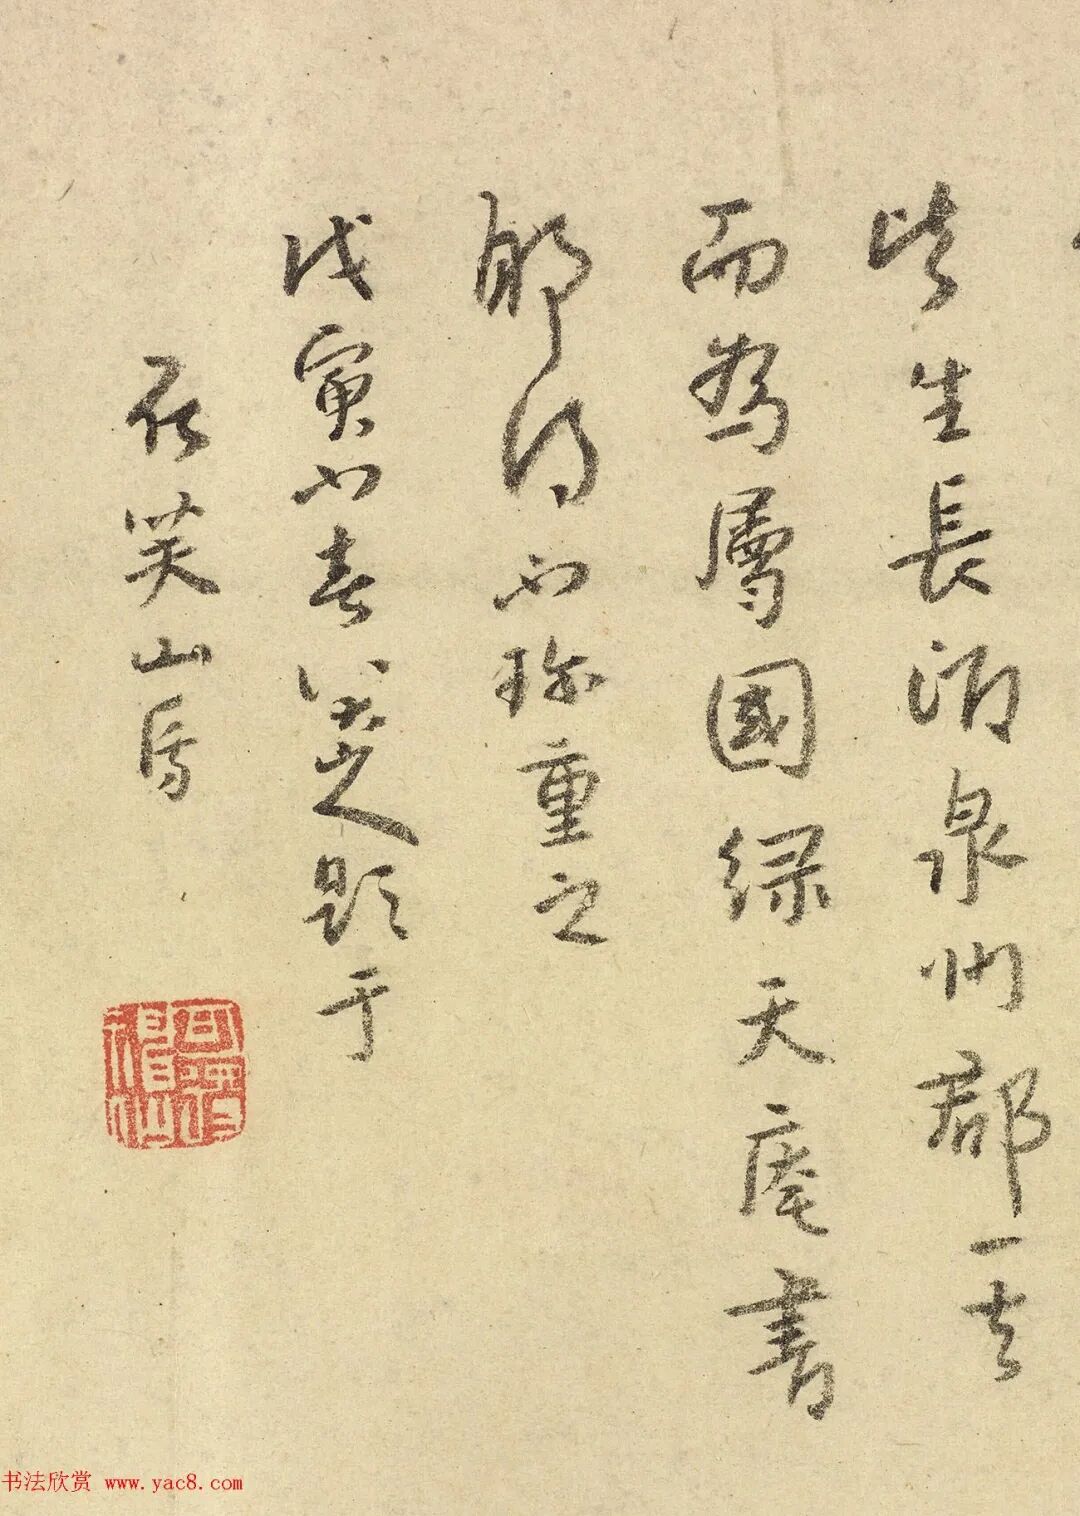 皆生長酒泉州郡一去
而為層國綠天庵書
那得不珍重之
戊寅小春八大山人題于
在芙山房
书法欣赏 www.yac8.com